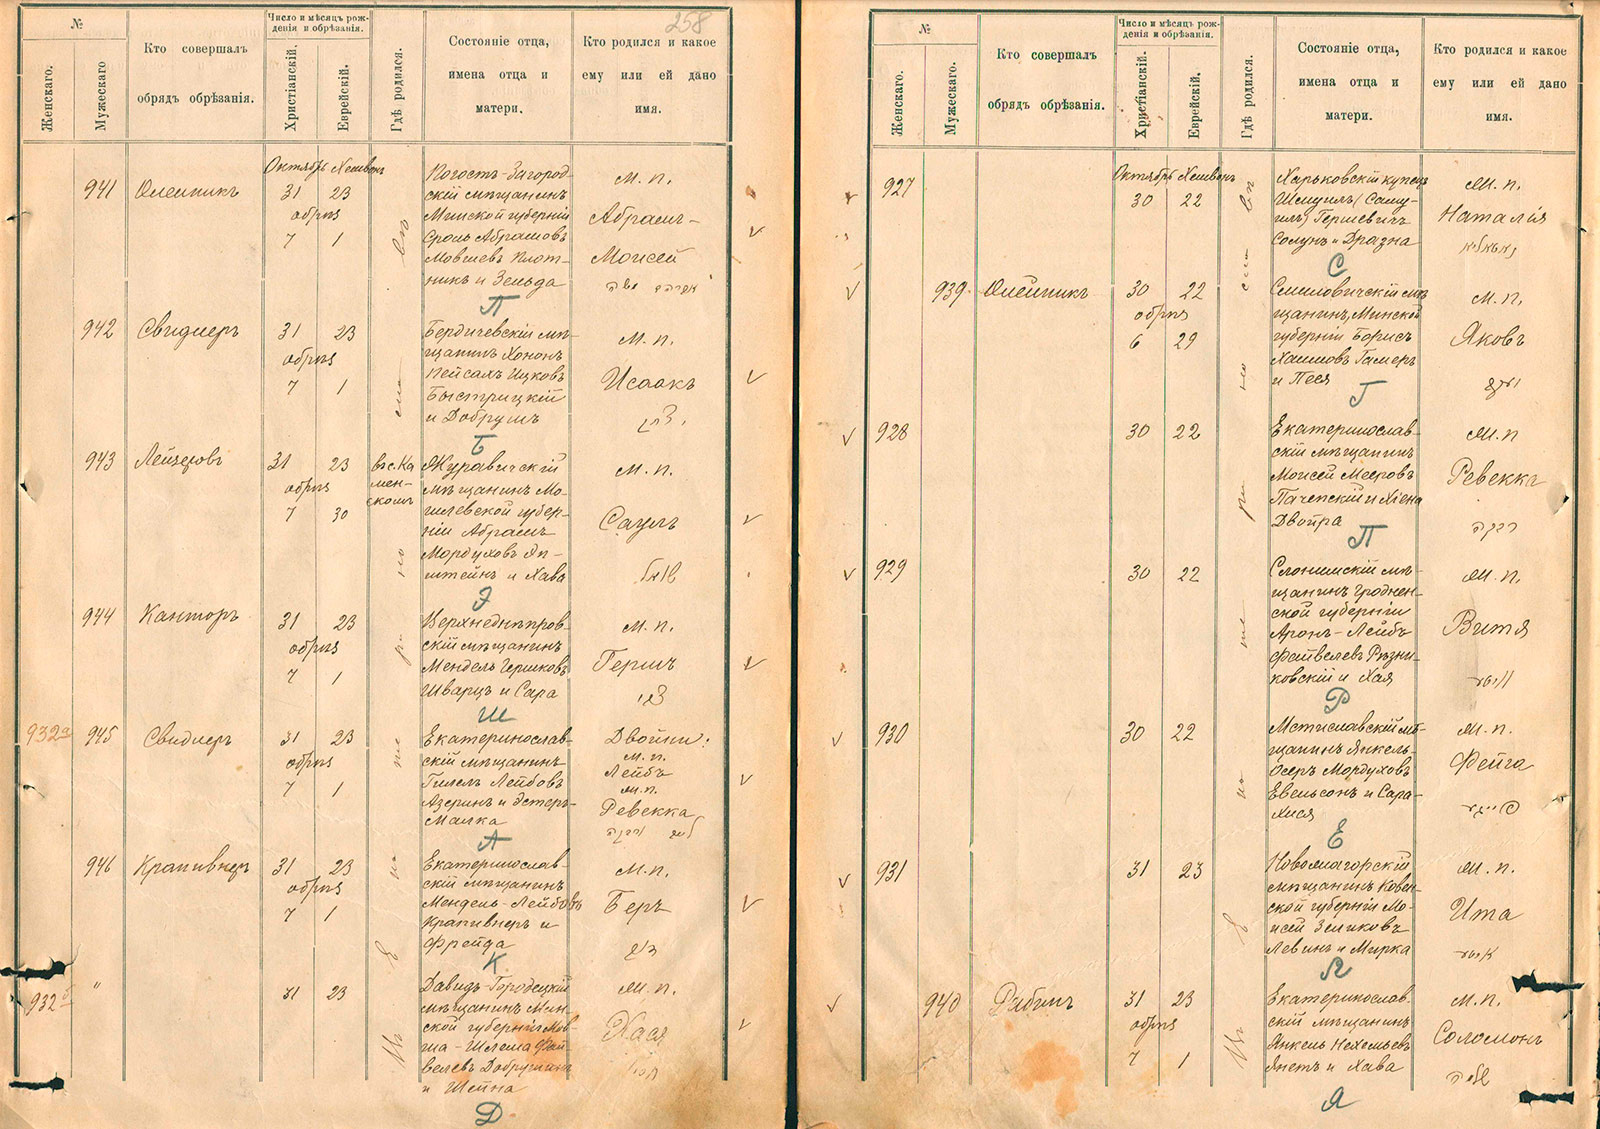 258
№
Женскаго.
Мужескаго
Кто совершалъ
обрядъ обрѣзанія.
Число и мѣсяцъ рож-
денія и обрѣзанія.
Христіанскій.
Еврейскій.
Гдѣ родился.
Состояніе отца,
имена отца и
матери.
Кто родился и какое
ему или ей дано
имя.
941
Олейникъ
Октябрь Хешвонъ
31 23
обрѣз
7 1
Погостъ-Загород-
скій мѣщанинъ
Минской губерніи
Сроль Абрамовъ
Мовшевъ Плот-
никъ и Зельда
П
М. п.
Абрамъ-
Моисей
942
Свидлеръ
31 23
обрѣз
7 1
Бердичевскій мѣ-
щанинъ Хонон
Пейсахъ Ицковъ
Быстрицкій
и Добрушъ
Б
М. п.
Исаакъ
943
Лейзеровъ
31 23
обрѣз
7 30
въ с. Ка
мен-
скомъ
Журавичскій
мѣщанинъ Мо-
гилевской губер-
ніи Абрамъ
Мордуховъ Эп-
штейнъ и Хава
Э
М. п.
Саулъ
944
Канторъ
31 23
обрѣз
7 1
Верхнеднѣпров-
скій мѣщанинъ
Мендель Гершковъ
Шварцъ и Сара
Ш
М. п.
Гершъ
932а
945
Свидлеръ
31 23
обрѣз
7 1
Екатеринослав-
скій мѣщанинъ
Гилель Лейбовъ
Азеринъ и Эстеръ-
Малка
А
Двойни:
М. п.
Лейбъ
М. п.
Ревекка
946
Крапивнеръ
31 23
обрѣз
7 1
Екатеринослав-
скій мѣщанинъ
Мендель-Лейбовъ
Крапивнеръ и
Фрейда
К
М. п.
Беръ
932б
"
31 23
Давидъ-Городецкій
мѣщанинъ Мин-
ской губерніи Мов-
ша-Шлема Фай-
велевъ Добрушинъ
и Шейна
Д
М. п.
Хася
№
Женскаго.
Мужескаго.
Кто совершалъ
обрядъ обрѣзанія.
Число и мѣсяцъ рож-
денія и обрѣзанія.
Христіанскій.
Еврейскій.
Гдѣ родился.
Состояніе отца,
имена отца и
матери.
Кто родился и какое
ему или ей дано
имя.
927
Октябрь Хешвонъ
30 22
Харьковскій купецъ
Шмуилъ (Саму-
илъ) Гершевичъ
Солунъ и Дразна
С
М. п.
Наталія
939
Олейникъ
30 22
обрѣз
6 29
Смиловичскій мѣ
щанинъ, Минской
губерніи Борисъ
Хаимовъ Гамеръ
и Песя
Г
М. п.
Яковъ
יעקב
928
30 22
Екатеринослав-
скій мѣщанинъ
Моисей Мееровъ
Пачепскій и Хіена
Двойра
П
М. п
Ревекка
רבקה
929
30 22
Слонимскій мѣ-
щанинъ Гроднен-
ской губерніи
Аронъ-Лейбъ
Файвелевъ Рѣзни-
ковскій и Хая
Р
М. п.
Витя
930
30 22
Мстиславскій мѣ-
щанинъ Янкель-
Осеръ Мордуховъ
Евельсонъ и Сара-
Хися
Е
М. п.
Фейга
931
31 23
Новоалагорскій
мѣщанинъ Ковен-
ской губерніи Мо-
исей Зеликовъ
Левинъ и Мирка
Л
М. п.
Ита
940
Рабинъ
31 23
обрѣз
7 1
Екатеринослав.
скій мѣщанинъ
Янкель Нехемьевъ
Янетъ и Хава
Я
М. п.
Соломонъ
שלמה